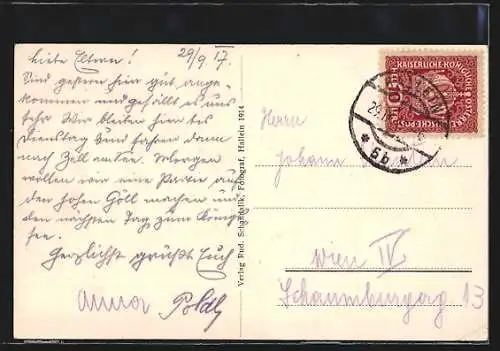 Liebe Eltern! 29/9 17.
Sind gestern hier gut ange-
kommen und gefällt es uns
sehr. Wir bleiben hier bis
Dienstag und fahren dann
nach Zell am See. Morgen
wollen wir eine Partie auf
den hohen Göll machen und
den nächsten Tag zum Königs-
see.
Herzlichst grüßt Euch
Anna Poldl
Verlag Rud. Schändalik, Fotograf, Hallein 1914
KAISERLICHE KÖNIGLICHE ÖSTERR.
6b
Herrn
Johann
Wien IV
Schaumburgerg 13